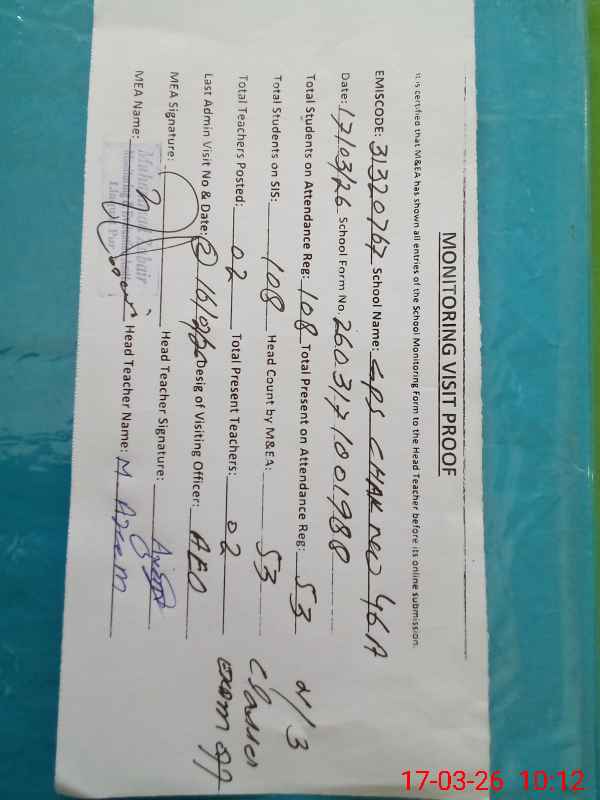 MONITORING VISIT PROOF
It is certified that M&EA has shown all entries of the School Monitoring Form to the Head Teacher before its online submission.
EMISCODE: 31320767 School Name: GPS CHAK NO 46A
Date: 17/03/26 School Form No. 2603171001988
Total Students on Attendance Reg: 108 Total Present on Attendance Reg: 53
Total Students on SIS: 108 Head Count by M&EA: 53
Total Teachers Posted: 02 Total Present Teachers: 02
Last Admin Visit No & Date: Desig of Visiting Officer: AEO
MEA Signature: Head Teacher Signature:
MEA Name: Head Teacher Name: M Azeem
Classes
exam off
17-03-26 10:12